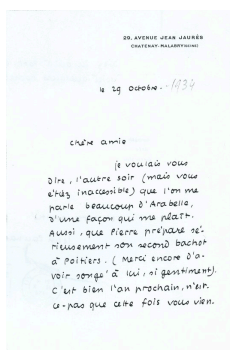 29, AVENUE JEAN JAURÈS
CHATENAY-MALABRY (SEINE)
le 29 octobre. -1934
Chère amie
je voulais vous
dire, l'autre soir (mais vous
étiez inaccessible) que l'on me
parle beaucoup d'Arabelle,
d'une façon qui me plaît.
Aussi, que Pierre prépare sé-
rieusement son second bachot
à Poitiers. (Merci encore d'a-
voir songé à lui, si gentiment).
C'est bien l'an prochain, n'est-
ce-pas que cette fois vous vien.